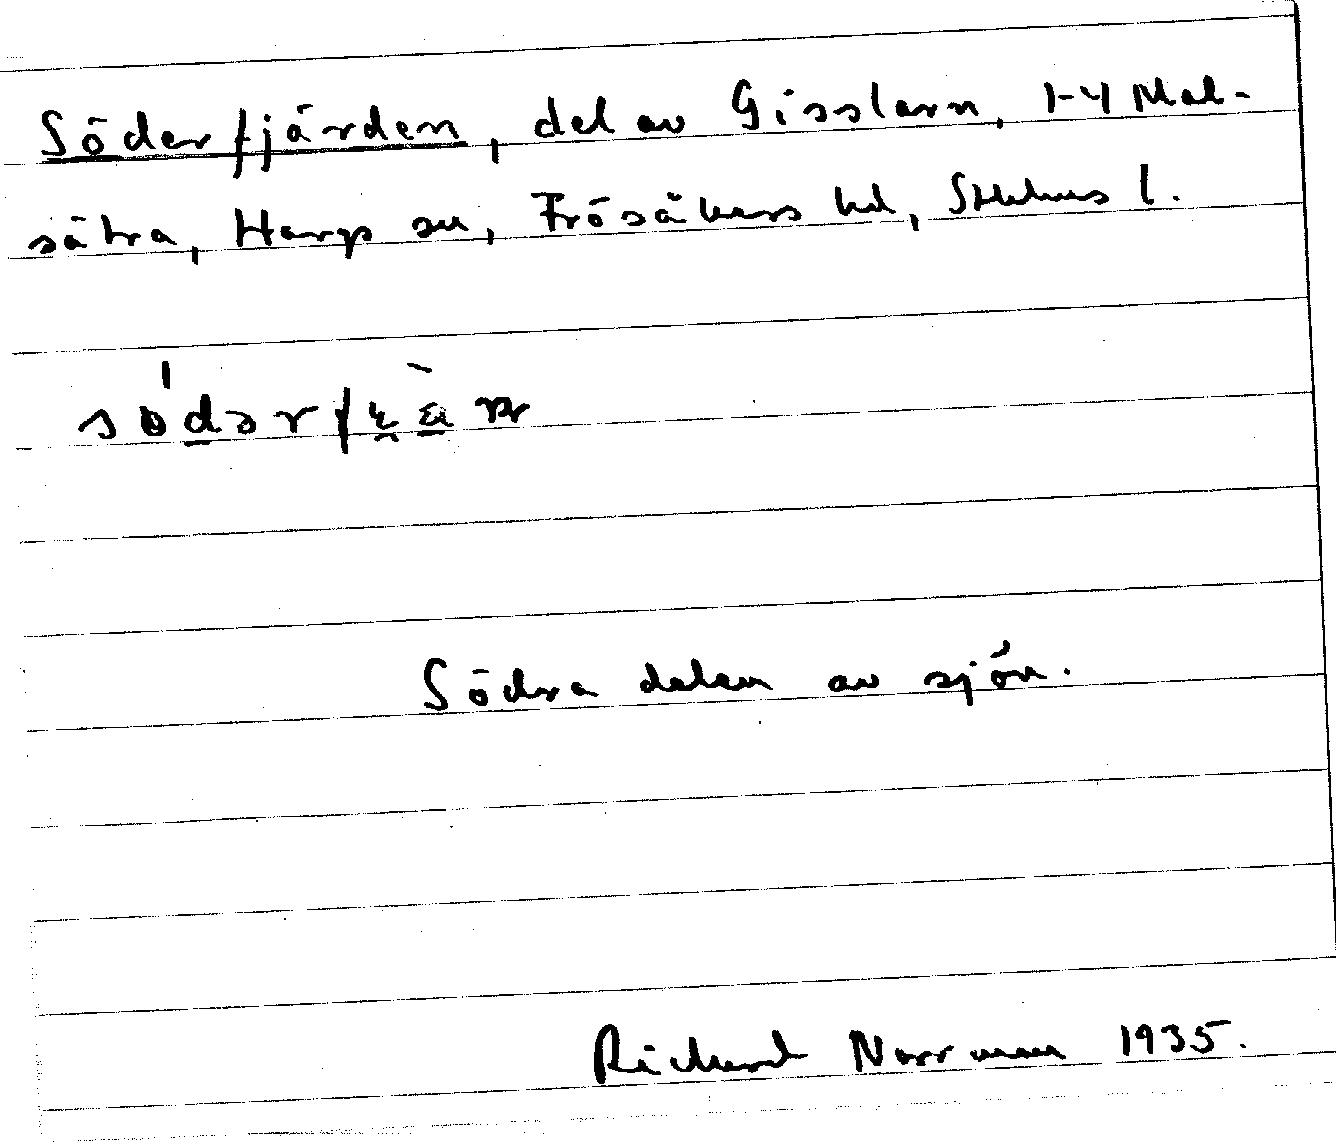 Söderfjärden, del av Gisslarn, 1-4 Mal-
sätra, Harg sn, Frösåkers hd, Sthlms l.
Södra delen av sjön.
Richard Norrman 1935.